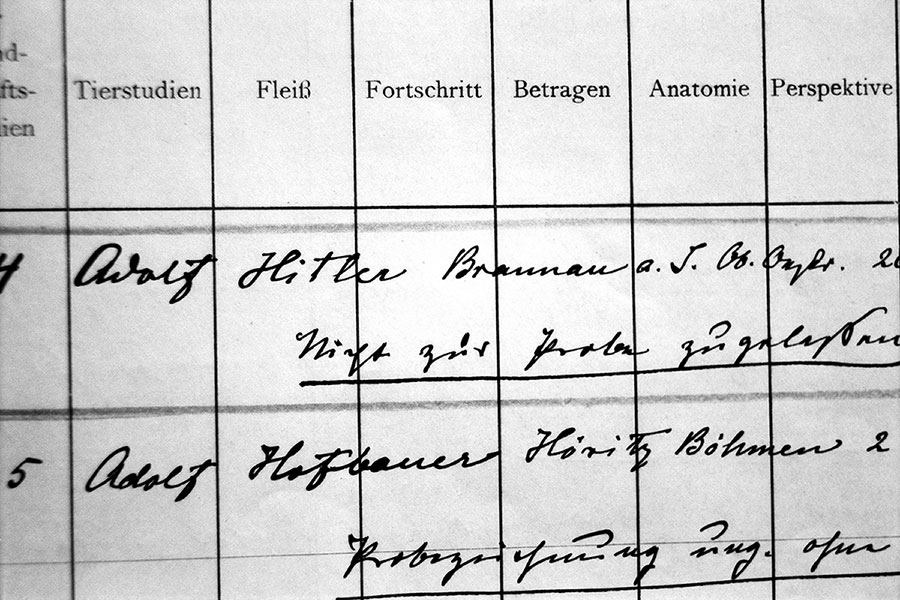 nd-
fts-
ien
Tierstudien Fleiß Fortschritt Betragen Anatomie Perspektive
4 Adolf Hitler Braunau a. I. Ob. 20
Nicht zur Probe zugelassen
5 Adolf Hofbauer Höritz Böhmen 2
Probezeichnung ung. ohne